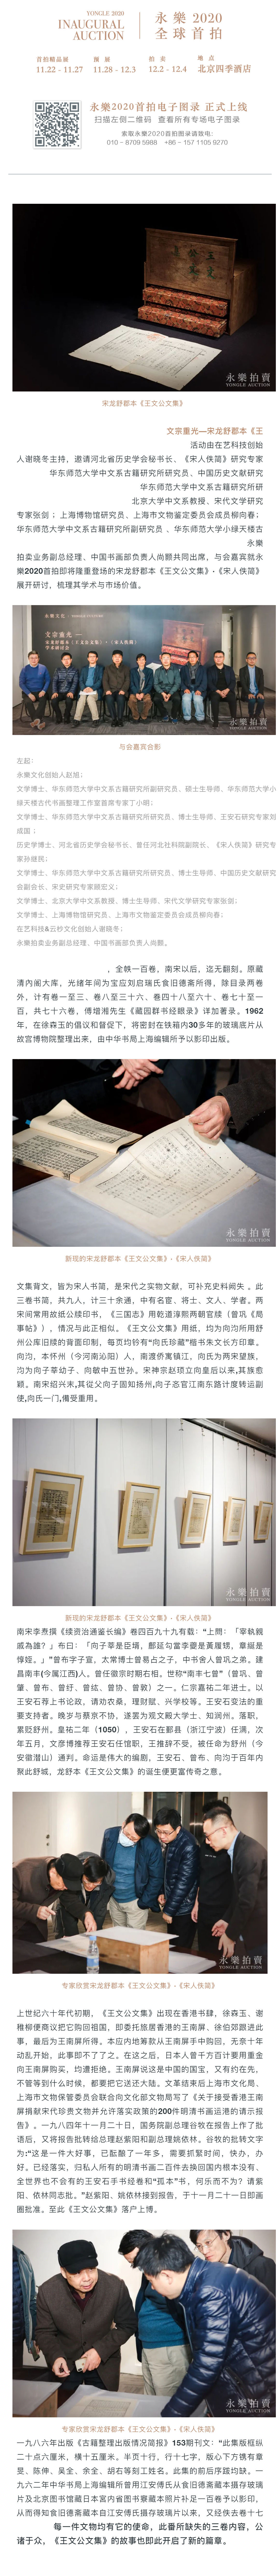 YONGLE 2020
INAUGURAL
AUCTION
永樂 2020
全球首拍
首拍精品展
11.22 - 11.27
预 展
11.28 - 12.3
拍 卖
12.2 - 12.4
地 点
北京四季酒店
永樂2020首拍电子图录 正式上线
扫描左侧二维码 查看所有专场电子图录
索取永樂2020首拍图录请致电:
010 - 8709 5988 +86 - 157 1105 9270
永樂拍賣
YONGLE AUCTION
宋龙舒郡本《王文公文集》
文宗重光—宋龙舒郡本《王
活动由在艺科技创始
人谢晓冬主持，邀请河北省历史学会秘书长、《宋人佚简》研究专家
华东师范大学中文系古籍研究所研究员、中国历史文献研究
华东师范大学中文系古籍研究所研
北京大学中文系教授、宋代文学研究
专家张剑；上海博物馆研究员、上海市文物鉴定委员会成员柳向春；
华东师范大学中文系古籍研究所副研究员、华东师范大学小绿天楼古
永樂
拍卖业务副总经理、中国书画部负责人尚颢共同出席，与会嘉宾就永
樂2020首拍即将隆重登场的宋龙舒郡本《王文公文集》·《宋人佚简》
展开研讨，梳理其学术与市场价值。
永樂拍賣
YONGLE AUCTION
与会嘉宾合影
左起：
永樂文化创始人赵旭；
文学博士、华东师范大学中文系古籍研究所副研究员、硕士生导师、华东师范大学小
绿天楼古代书画整理工作室首席专家丁小明；
文学博士、华东师范大学中文系古籍研究所研究员、博士生导师、王安石研究专家刘
成国；
历史学博士、河北省历史学会秘书长、曾任河北社科院副院长、《宋人佚简》研究专
家孙继民；
文学博士、华东师范大学中文系古籍研究所研究员、博士生导师、中国历史文献研究
会副会长、宋史研究专家顾宏义；
文学博士、北京大学中文系教授、博士生导师、宋代文学研究专家张剑；
文学博士、上海博物馆研究员、上海市文物鉴定委员会成员柳向春；
在艺科技&云纱文化创始人谢晓冬；
永樂拍卖业务副总经理、中国书画部负责人尚颢。
，全帙一百卷，南宋以后，迄无翻刻。原藏
清内阁大库，光绪年间为宝应刘启瑞氏食旧德斋所得，除目录两卷
外，计有卷一至三、卷八至三十六、卷四十八至六十、卷七十至一
百，共七十六卷，傅增湘先生《藏园群书经眼录》详加著录。1962
年，在徐森玉的倡议和督促下，将密封在铁箱内30多年的玻璃底片从
故宫博物院整理出来，由中华书局上海编辑所予以影印出版。
永樂拍賣
YONGLE AUCTION
新现的宋龙舒郡本《王文公文集》·《宋人佚简》
文集背文，皆为宋人书简，是宋代之实物文献，可补充史料阙失 。此
三卷书简，共九人，计三十余通，中有名宦、将士、文人、学者。两
宋间常用故纸公牍印书，《三国志》用乾道淳熙两朝官牍（曾巩《局
事帖》），情况与此正相似。《王文公文集》用纸，均为向沟所用舒
州公库旧牍的背面印制，每页均钤有“向氏珍藏”楷书朱文长方印章。
向沟，本怀州（今河南沁阳）人，南渡侨寓镇江，向氏为两宋望族，
沟为向子莘幼子、向敏中五世孙。宋神宗赵顼立向皇后以来,其族愈
颖。南宋绍兴末,其從父向子固知扬州,向子忞官江南东路计度转运副
使,向氏一门,備受重用。
永樂拍賣
YONGLE AUCTION
新现的宋龙舒郡本《王文公文集》·《宋人佚简》
南宋李焘撰《续资治通鉴长编》卷四百九十九有载：“上問：「宰執親
戚為誰？」布曰：「向子莘是臣壻，鄜延勾當李夔是黄履甥，章縡是
惇姪。」”曾布字子宣，太常博士曾易占之子，中书舍人曾巩之弟。建
昌南丰(今属江西)人。曾任徽宗时期右相。世称“南丰七曾”（曾巩、曾
肇、曾布、曾纡、曾纮、曾协、曾敦）之一。仁宗嘉祐二年进士。以
王安石荐上书论政，请劝农桑，理财赋、兴学校等。王安石变法的重
要支持者。晚岁与蔡京不协，遂罢为观文殿大学士、知润州。落职，
累贬舒州。皇祐二年（1050），王安石在鄞县（浙江宁波）任满，次
年五月，文彦博推荐王安石任馆职，王推辞不受，被任命为舒州（今
安徽潜山）通判。命运是伟大的编剧，王安石、曾布、向沟于百年内
聚此舒城，龙舒本《王文公文集》的诞生便更富传奇之意。
永樂拍賣
YONGLE AUCTION
专家欣赏宋龙舒郡本《王文公文集》·《宋人佚简》
上世纪六十年代初期，《王文公文集》出现在香港书肆，徐森玉、谢
稚柳便商议把它购回祖国，即委托旅居香港的王南屏、徐伯郊跟进此
事，最后为王南屏所得。本应内地筹款从王南屏手中购回，无奈十年
动乱开始，此事即不了了之。在这之后，日本人曾千方百计要用重金
向王南屏购买，均遭拒绝。王南屏说这是中国的国宝，又有约在先，
不管等到什么时候，都要把它送还大陆。文革结束后上海市文化局、
上海市文物保管委员会联合向文化部文物局写了《关于接受香港王南
屏捐献宋代珍贵文物并允许落实政策的200件明清书画运港的请示报
告》。一九八四年十一月二十日，国务院副总理谷牧在报告上作了批
语后，又将报告批转给总理赵紫阳和副总理姚依林。谷牧的批转文字
为:“这是一件大好事，已酝酿了一年多，需要抓紧时间，快办，办
好。已经落实，归私人所有的明清书画二百件去换回国内根本没有、
全世界也不会有的王安石手书经卷和“孤本”书，何乐而不为？请紫
阳、依林同志批。”赵紫阳、姚依林接到报告，于十一月二十一日即画
圈批准。至此《王文公文集》落户上博。
永樂拍賣
YONGLE AUCTION
专家欣赏宋龙舒郡本《王文公文集》·《宋人佚简》
一九八六年出版《古籍整理出版情况简报》153期刊文：“此集版框纵
二十点六厘米，横十五厘米。半页十行，行十七字，版心下方镌有章
旻、陈伸、吴全、余全、胡右等刻工姓名。此集的前后序跋均缺。一
九六二年中华书局上海编辑所曾用江安傅氏从食旧德斋藏本摄存玻璃
片及北京图书馆藏日本宫内省图书寮藏本照片补足一百卷予以影印，
从而得知食旧德斋藏本自江安傅氏摄存玻璃片以来，又经佚去卷十七
每一件文物均有它的使命，此番所缺失的三卷内容，公
诸于众，《王文公文集》的故事也即此开启了新的篇章。